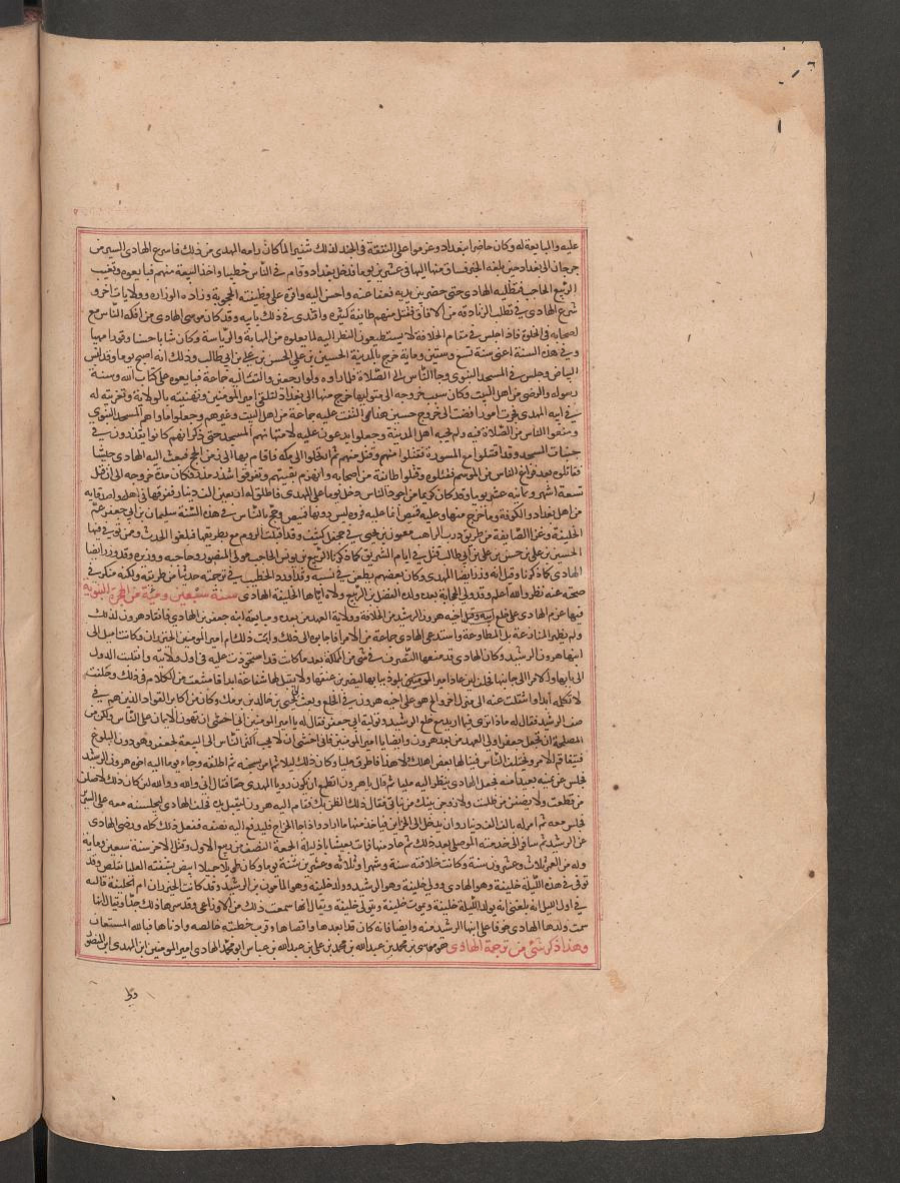 عليه والمبايعة له وكان حاضرا ببغداد وعزموا على النفقة في الجند لذلك تنفيذا لما كان رامه المهدى من ذلك فاسرع الهادى السير من
جرجان الى بغداد حين بلغه الخبر فساق منها اليها في عشرين يوما فدخل بغداد وقام في الناس خطيبا واخذ البيعة منهم فبايعوه وتغيب
الربيع الحاجب فتطلبه الهادى حتى حضر بين يديه فعفا عنه واحسن اليه واقره على وظيفته الحجوبية وزاده الوزاره وولايات اخر و
شرع الهادى في تطلب الزنادقه من الآفاق فقتل منهم طايفة كثيره واقتدى في ذلك بابيه وقد كان موسى الهادى من افكه الناس مع
اصحابه في الخلوة فاذا جلس في مقام الخلافة لا يستطيعون النظر اليه لما يعلوه من المهابة والرياسة وكان شابا حسنا وقورا مهيبا
وفي هذه السنة اعنى سنة تسع وستين وماية خرج بالمدينة الحسين بن على بن الحسن بن على بن ابى طالب وذلك انه اصبح يوما وقد لبس
البياض وجلس في المسجد النبوى وجاء الناس الى الصلاة فلما راوه ولوا راجعين والتف اليه جماعة فبايعوه على كتاب الله وسنة
رسوله والرضى من اهل البيت وكان سبب خروجه ان متوليها خرج منها الى بغداد لتلقى امير المومنين وتهنئته بالولاية وتعزيته له
في ابيه المهدى فجرت امور افضت الى خروج حسين هذا التفت عليه جماعة من اهل البيت وغيرهم وجعلوا ماواهم المسجد النبوى
ومنعوا الناس من الصلاة فيه ولم يجبه اهل المدينة وجعلوا يدعون عليه لامتهانهم المسجد حتى ذكر انهم كانوا يقذرون في
جنبات المسجد وقد اقتتلوا مع المسودة فقتلوا منهم وقتل منهم ثم ارتحلوا الى مكه فاقام بها الى زمن الحج فبعث اليه الهادى جيشا
فقاتلوه بعد فراغ الناس من الموسم فقتلوه وقتلوا طائفة من اصحابه وانهزم بقيتهم وتفرقوا شذر مذر فكان مدة خروجه الى ان قتل
تسعة اشهر وثمانية عشر يوما وقد كان كريما من اجود الناس دخل يوما على المهدى فاطلق له اربعين الف دينار ففرقها في اهله واصدقايه
من اهل بغداد والكوفة وما خرج منها وعليه قميص انما عليه فروه ليس دونها قميص وحج بالناس في هذه السنة سليمان بن ابى جعفر عم
الخليفة وغزا الصائفة من طريق درب الراهب معيوف بن يحيى في جحفل كثيف وقد اقبلت الروم مع بطريقها فبلغوا الحدث وممن توفى فيها
الحسين بن على بن حسن بن على بن ابى طالب قتل في ايام التشريق كما ذكرنا الربيع بن يونس الحاجب مولى المنصور وحاجبه ووزيره وقد وزر ايضا
الهادى كما ذكرنا وقيل انه وزر ايضا المهدى وكان بعضهم يطعن في نسبه وقد اورد الخطيب في ترجمته حديثا من طريقه ولكنه منكر وفى
صحته عنه نظر والله اعلم وقد ولى الحجابة بعده ولده الفضل بن الربيع ولاه اياها الخليفة الهادى سنة سبعين ومية من الهجرة النبوية
فيها عزم الهادى على خلع اخيه هرون الرشيد من الخلافة وولاية العهد من بعده ومبايعة ابنه جعفر بن الهادى فانقاد هرون لذلك
ولم يظهر المنازعة بل المطاوعة واستدعى الهادى جماعة من الامرا فاجابوه الى ذلك وابت ذلك ام امير المومنين الخيزران وكانت اميل الى
ابنها هرون الرشيد وكان الهادى قد منعها التصرف في شى من المملكة بعد ما كانت قد استحوذت عليه في اول ولايته وانقلبت الدول
الى بابها والامرا الى جنابها فحلف لين عاد امير يلوذ ببابها ليضربن عنقها ولا يقبل لها شفاعة ابدا فامتنعت من الكلام في ذلك وحلفت
لا تكلمه ابدا وانتقلت عنه الى منزل اخر والح هو على اخيه هرون في الخلع وبعث الى يحيى بن خالد بن برمك وكان من اكابر القواد الذين هم في
صف الرشيد فقال له ماذا ترى فيما اريد مع خلع الرشيد وتولية ابنى جعفر فقال له يا امير المومنين انى اخشى ان تهون الايمان على الناس ولكن من
المصلحة ان تجعل جعفر ولى العهد من بعد هرون وايضا يا امير المومنين فانى اخشى ان لا يجيب اكثر الناس الى البيعة لجعفر وهو دون البلوغ
فيتفاقم الامر ويختلف الناس فينالها بعض اهلك لا هذا فاطرق مليا وكان ذلك ليلا ثم امر بسجنه ثم اطلقه وجاء يوما اليه اخوه هرون الرشيد
فجلس عن يمينه بعيدا منه فجعل الهادى ينظر اليه مليا ثم قال يا هرون اتطمع ان يكون رويا المهدى حقا فقال اى والله ووالله لئن كان ذلك لاصلن
من قطعت ولانصفن من ظلمت ولازوجن بنيك من بناتى فقال ذلك الظن بك فقام اليه هرون ليقبل يده فحلف الهادى ليجلسنه معه على السرير
فجلس معه ثم امر له بالف الف دينار وان يدخل الى الخزاين فياخذ منها ما اراد واذا جا الخراج فليدفع اليه نصفه ففعل ذلك كله ورضى الهادى
عن الرشيد ثم سافر الى حديثة الموصل بعد ذلك ثم عاد منها فمات بعيساباذ ليلة الجمعة النصف من ربيع الاول وقيل الاخر سنة سبعين وماية
وله من العمر ثلاث وعشرون سنة وكانت خلافته سنة وشهرا وثلاثة وعشرين يوما وكان طويلا جميلا ابيض بشفته العليا تقلص وقد
توفى في هذه الليلة خليفة وهو الهادى وولى خليفة وهو الرشيد وولد خليفة وهو المامون بن الرشيد وقد كانت الخيزران ام الخليفة قالته
في اول الليل انه بلغنى انه يولد الليلة خليفة ويموت خليفة ويتولى خليفة ويقال انها سمعت ذلك من الاوزاعى وقد سرها ذلك جدا ويقال انها
سمت ولدها الهادى خوفا على ابنها الرشيد منه وايضا فانه كان قد ابعدها واقصاها وقرب حظيته خالصه وادناها فبالله المستعان
وهذا ذكر شىء من ترجمة الهادى هو موسى بن محمد بن عبد الله بن محمد بن على بن عبد الله بن عباس ابو محمد الهادى امير المومنين ابن المهدى ابن المنصور